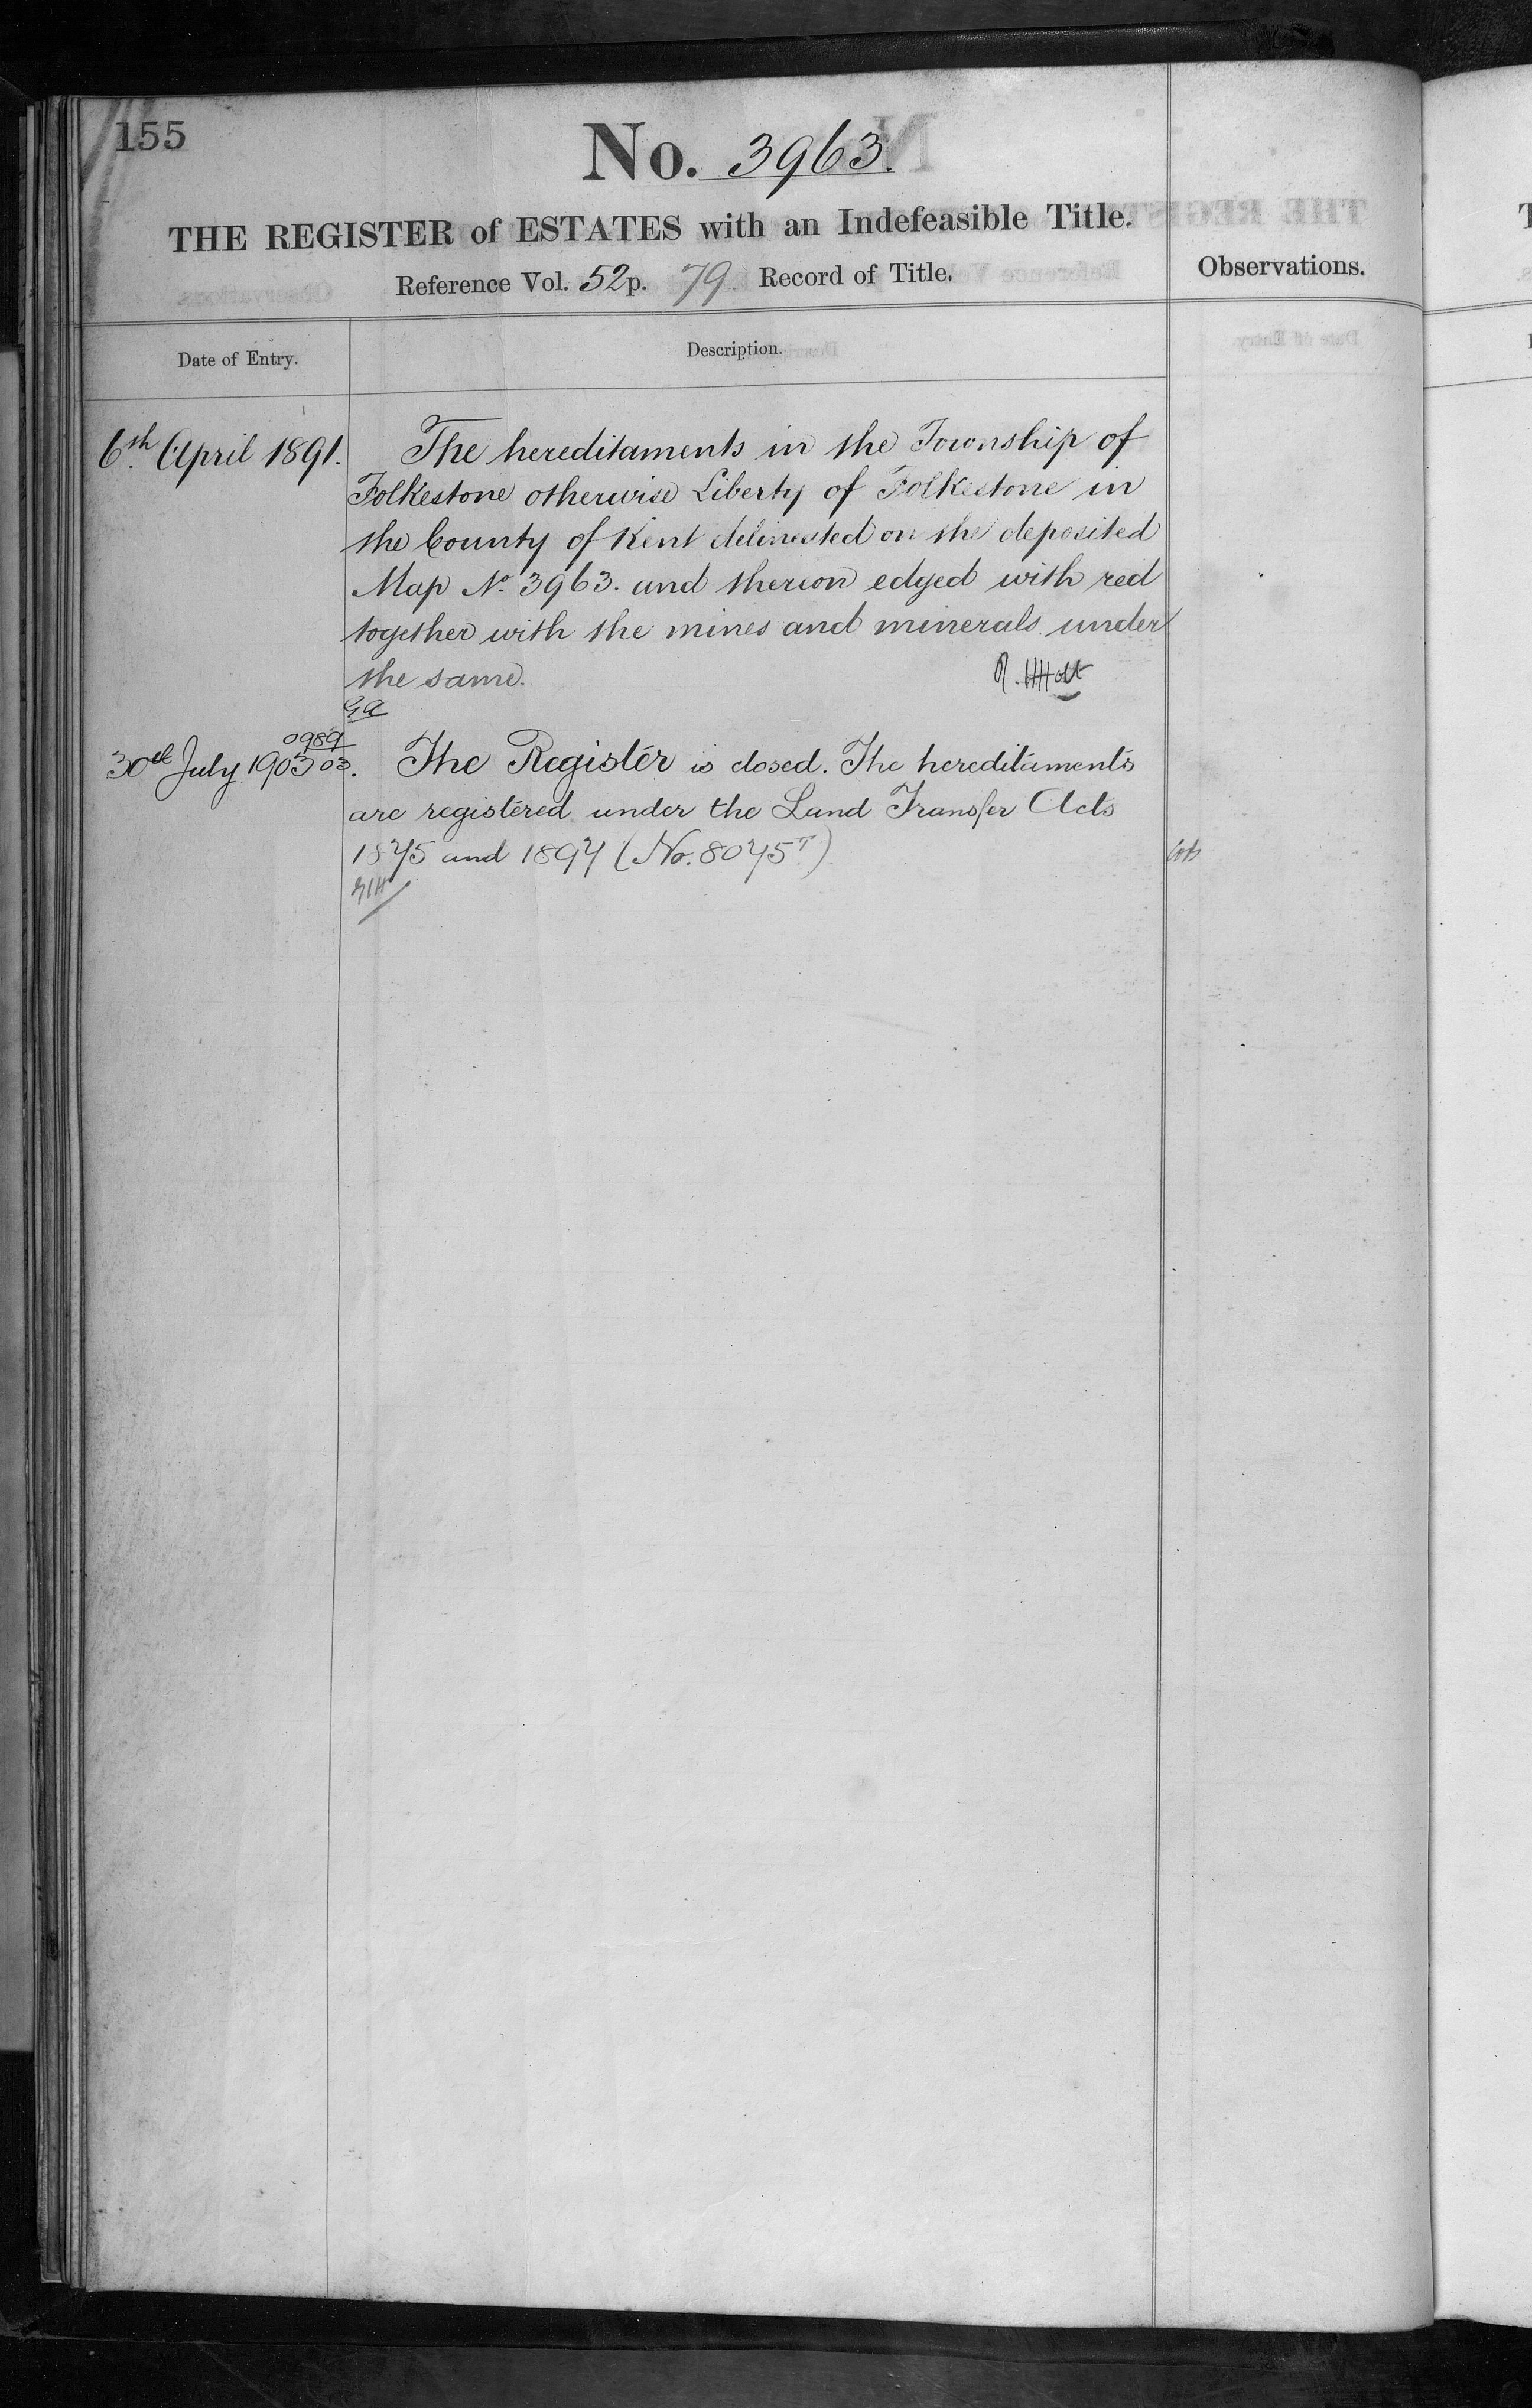 155
No. 3963.
THE REGISTER of ESTATES with an Indefeasible Title.
Reference Vol. 52 p. 79. Record of Title.
Observations.
Date of Entry.
Description.
6th April 1891.
The hereditaments in the Township of
Folkestone otherwise Liberty of Folkestone in
the County of Kent delineated on the deposited
Map No. 3963. and thereon edged with red
together with the mines and minerals under
the same.
R. H Holt
GA
0989
03
30th July 1903.
The Register is closed. The hereditaments
are registered under the Land Transfer Acts
1875 and 1897 (No. 8075T)